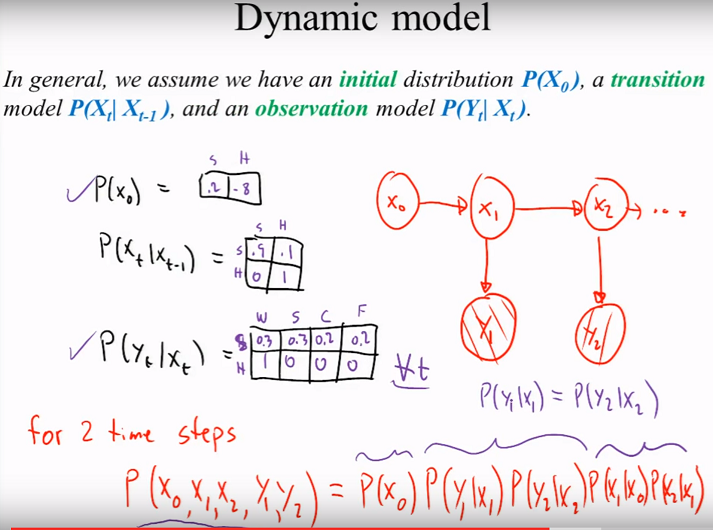 Dynamic model
In general, we assume we have an initial distribution P(X₀), a transition
model P(Xₜ| Xₜ₋₁ ), and an observation model P(Yₜ| Xₜ ).
S H
P(x₀) = .2 .8
X₀ X₁ X₂ ...
S H
P(xₜ|xₜ₋₁) = S .9 .1
H 0 1
Y₁ Y₂
W S C F
P(yₜ|xₜ) = S 0.3 0.3 0.2 0.2
H 1 0 0 0 ∀t
P(y₁|x₁) = P(y₂|x₂)
for 2 time steps
P(x₀,x₁,x₂,y₁,y₂) = P(x₀) P(y₁|x₁) P(y₂|x₂) P(x₁|x₀) P(x₂|x₁)